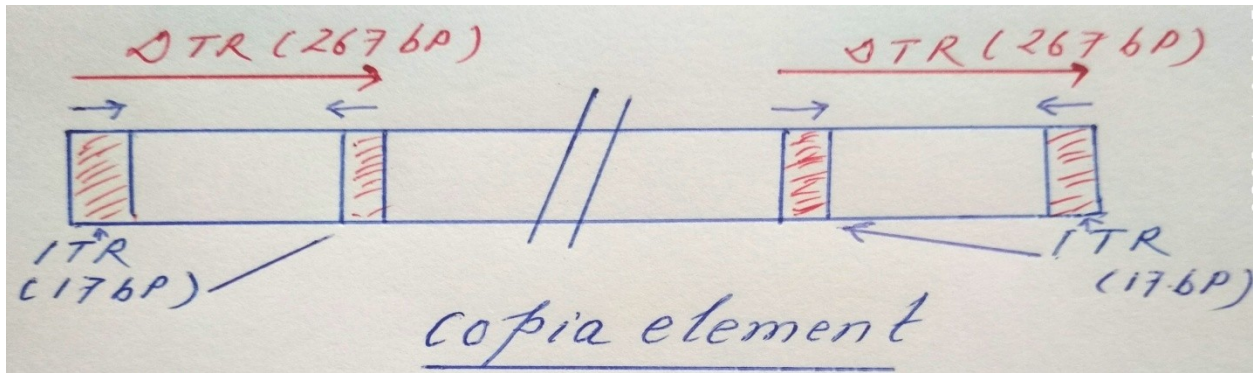 DTR (267 bP)
DTR (267 bP)
ITR
(17 bP)
ITR
(17.bP)
copia element